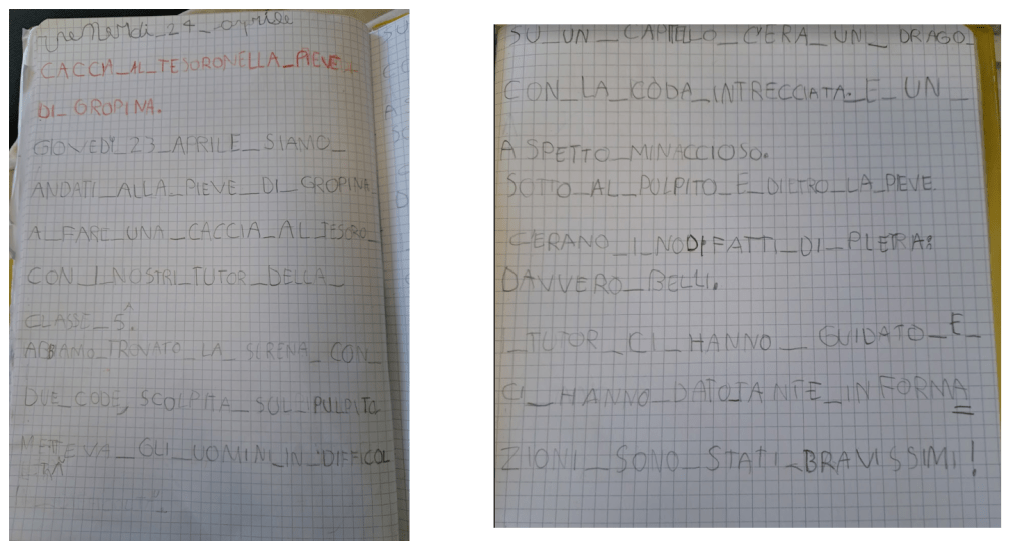 venerdì_24_aprile
CACCIA_AL_TESORONELLA_PIEVE
DI_GROPINA.
GIOVEDÌ_23_APRILE_SIAMO_
ANDATI_ALLA_PIEVE_DI_GROPINA
A_FARE_UNA_CACCIA_AL_TESORO_
CON_I_NOSTRI_TUTOR_DELLA_
CLASSE_5^.
ABBIAMO_TROVATO_LA_SIRENA_CON_
DUE_CODE, SCOLPITA_SUL_PULPITO
METTEVA_GLI_UOMINI_IN_DIFFICOL
TÀ
SU_UN_CAPITELLO_C'ERA_UN_DRAGO_
CON_LA_CODA_INTRECCIATA_E_UN_
ASPETTO_MINACCIOSO.
SOTTO_AL_PULPITO_E_DIETRO_LA_PIEVE
C'ERANO_I_NODI_FATTI_DI_PIETRA:
DAVVERO_BELLI.
I_TUTOR_CI_HANNO_GUIDATO_E_
CI_HANNO_DATO_TANTE_INFORMA
ZIONI_SONO_STATI_BRAVISSIMI!